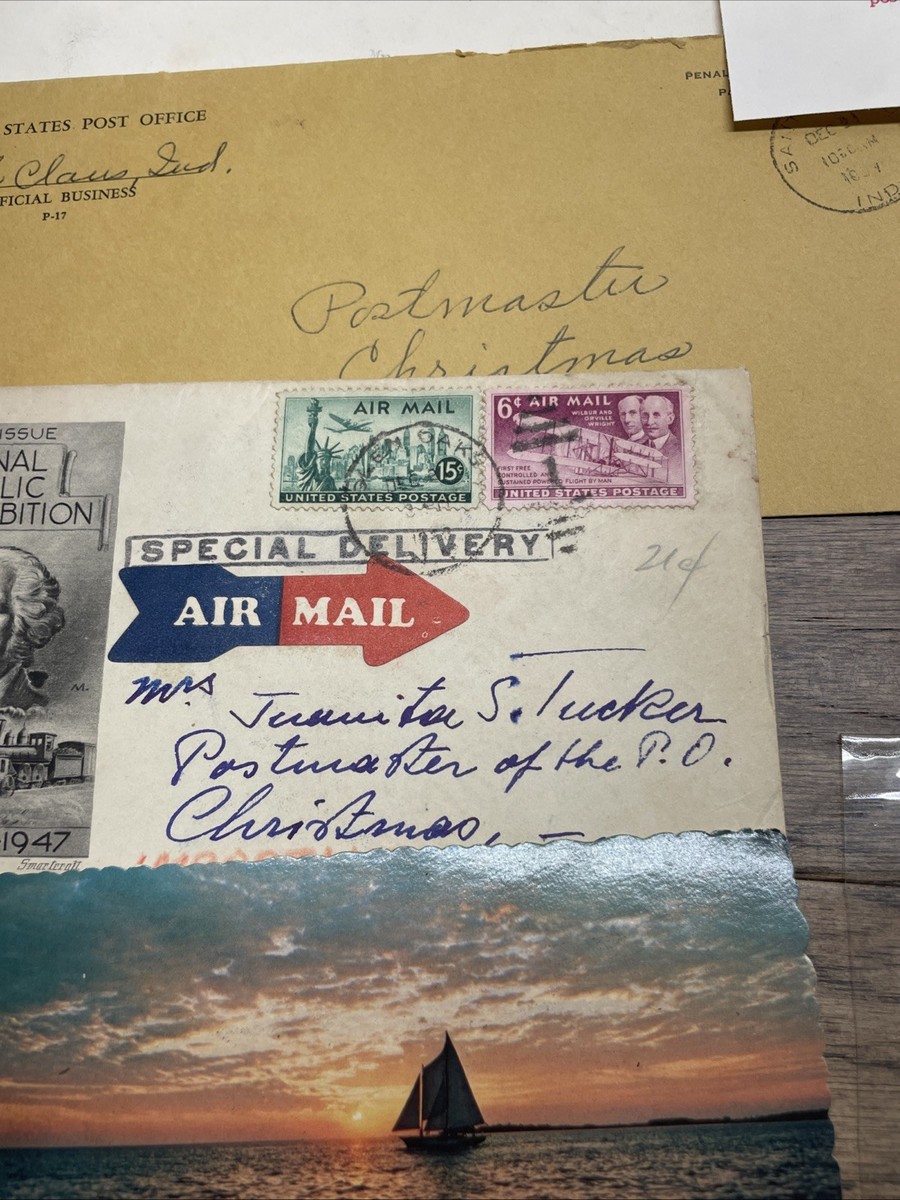 PENAL
STATES POST OFFICE
Claus, Ind.
FICIAL BUSINESS
P-17
DEC 21
IND
Postmaster
Christmas
ISSUE
NAL
LIC
BITION
AIR MAIL
15¢
UNITED STATES POSTAGE
6¢ AIR MAIL
WILBUR AND
ORVILLE
WRIGHT
FIRST FREE
CONTROLLED AND
SUSTAINED POWERED FLIGHT BY MAN
UNITED STATES POSTAGE
SPECIAL DELIVERY
21¢
AIR MAIL
M.
Mrs
Juanita S. Tucker
Postmaster of the P.O.
Christmas,
1947
Smartcraft